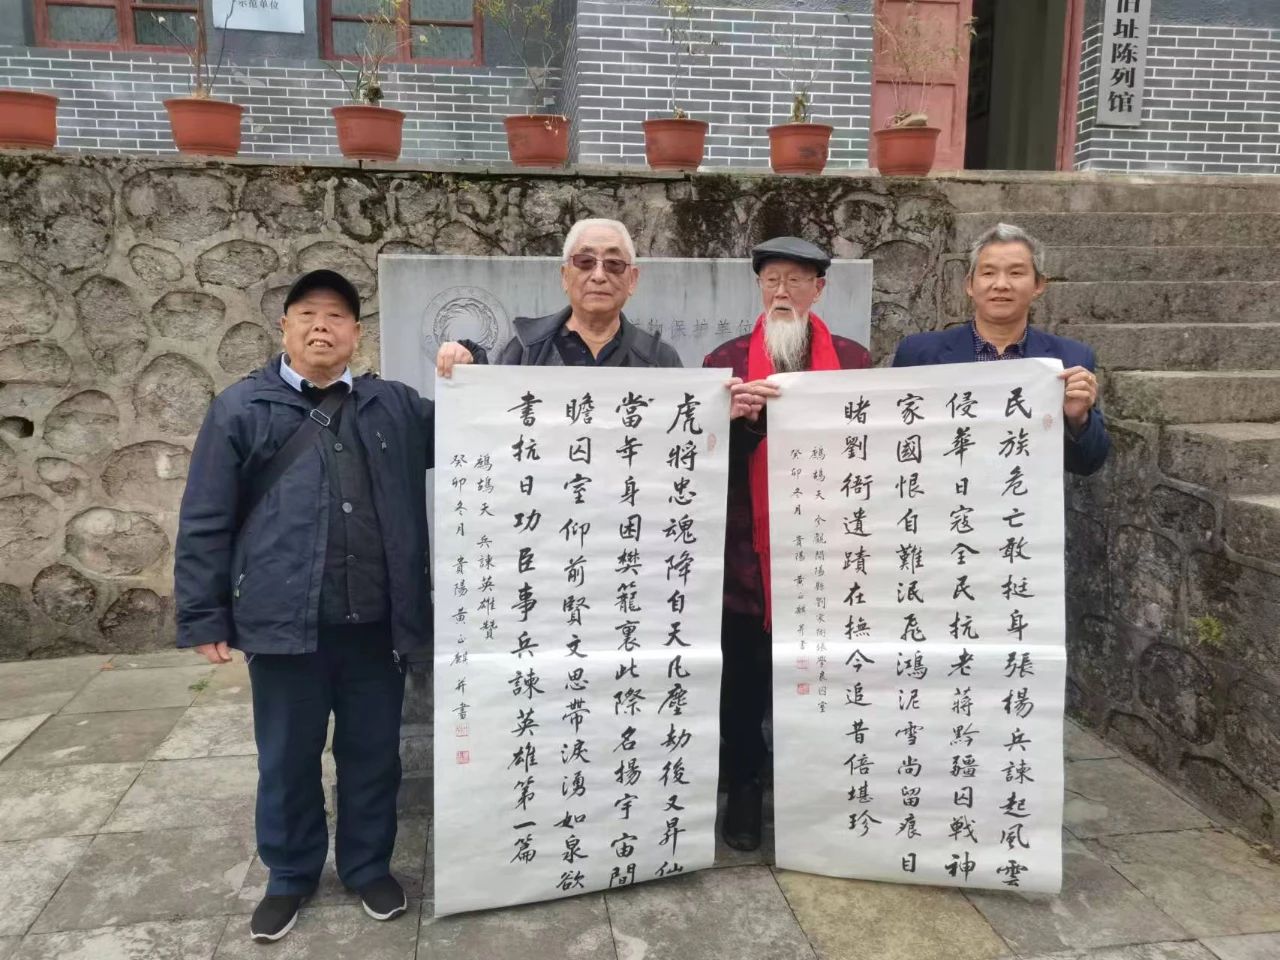 示范单位
旧址陈列馆
物保护单位
民族危亡敢挺身張楊兵諫起風雲
侵華日寇全民抗老蔣黔疆囚戰神
家國恨自難泯飛鴻泥雪尚留痕目
睹劉衙遺蹟在撫今追昔倍堪珍
鷓鴣天 今觀開陽縣劉家衙張學良囚室
癸卯冬月 貴陽 黄正麒并書
虎將忠魂降自天凡塵劫後又昇仙
當年身困樊籠裏此際名揚宇宙間
瞻囚室仰前賢文思帶淚湧如泉欲
書抗日功臣事兵諫英雄第一篇
鷓鴣天 兵諫英雄贊
癸卯冬月 貴陽 黄正麒并書